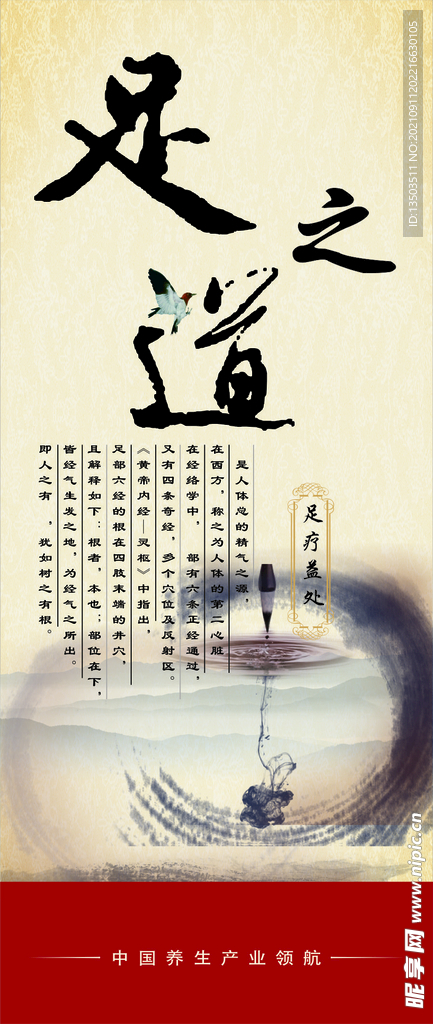 足之道
足疗益处
是人体总的精气之源，
在西方，称之为人体的第二心脏
在经络学中，　部有六条正经通过，
又有四条奇经，多个穴位及反射区。
《黄帝内经—灵枢》中指出，
足部六经的根在四肢末端的井穴，
且解释如下：根者，本也；部位在下，
皆经气生发之地，为经气之所出。
即人之有　，犹如树之有根。
中国养生产业领航
ID:13503511 NO:20210911202216630105
昵享网 www.nipic.cn